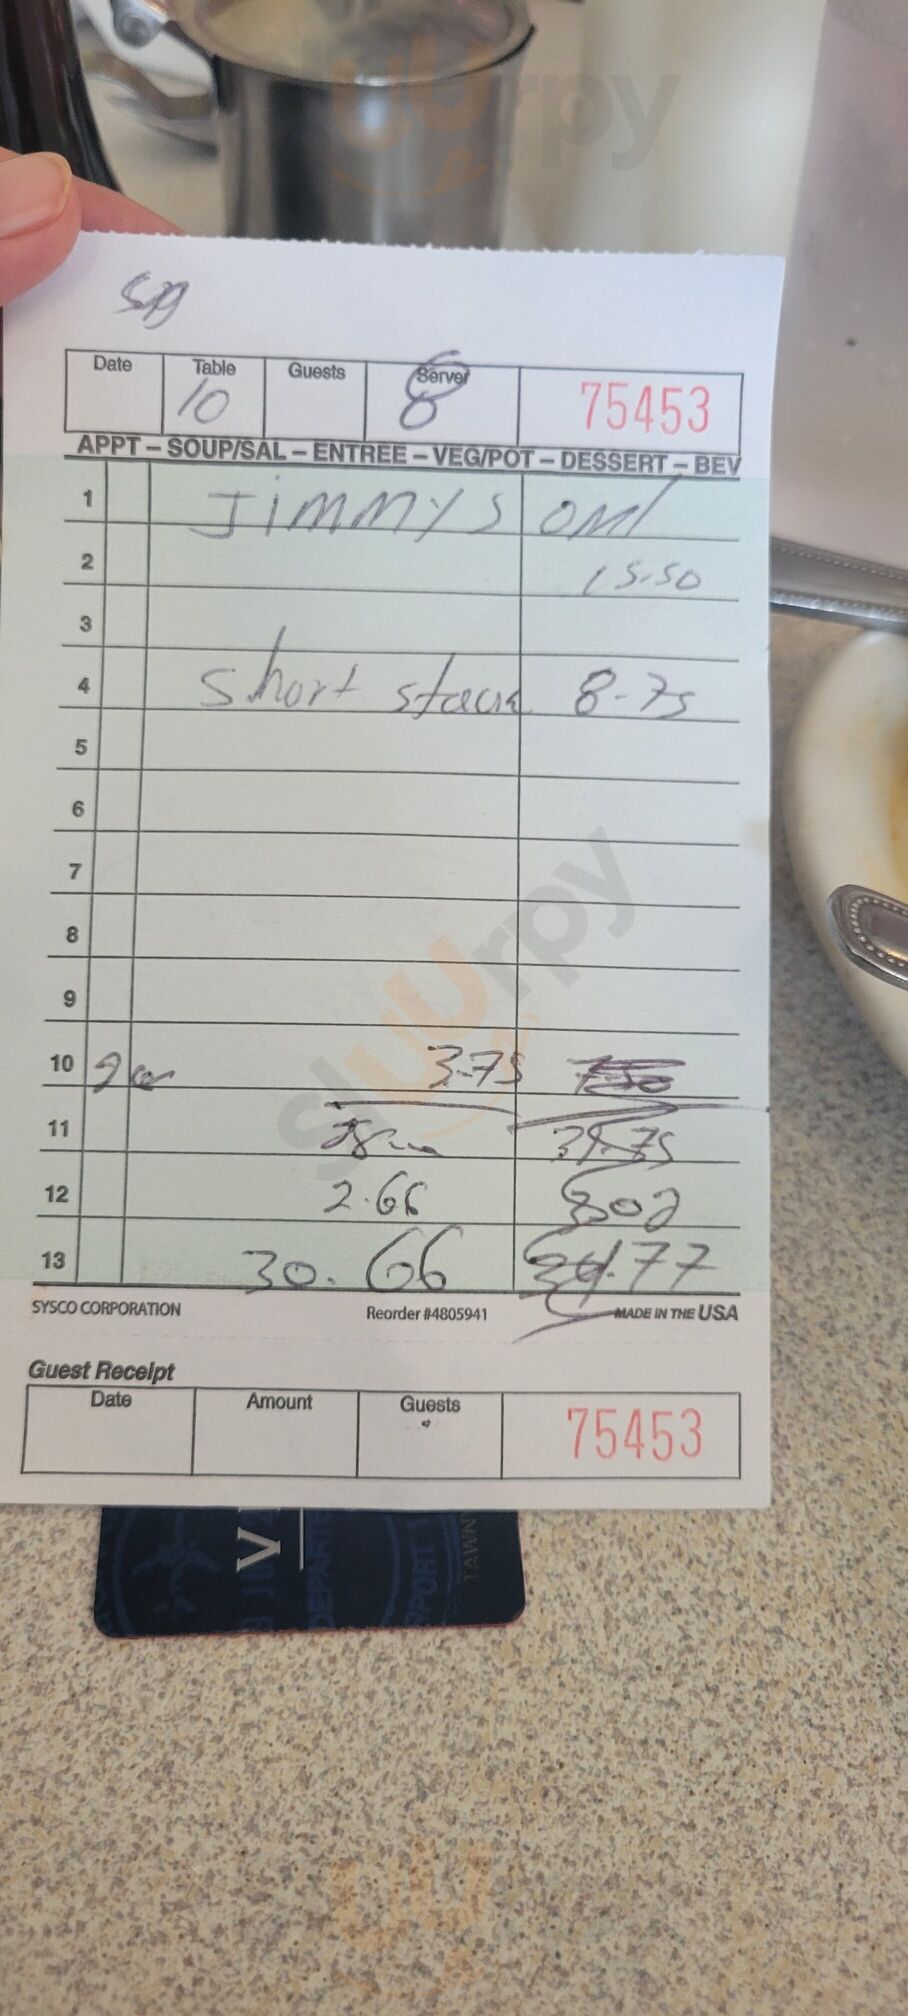 Date Table Guests Server
10 8 75453
APPT – SOUP/SAL – ENTREE – VEG/POT – DESSERT – BEV
1 JIMMYS OMl
2 15.50
3
4 short stack 8-75
5
6
7
8
9
10 2 3-75 7.50
11 28 31.75
12 2.66 302
13 30.66 34.77
SYSCO CORPORATION Reorder #4805941 MADE IN THE USA
Guest Receipt
Date Amount Guests 75453
sluurpy